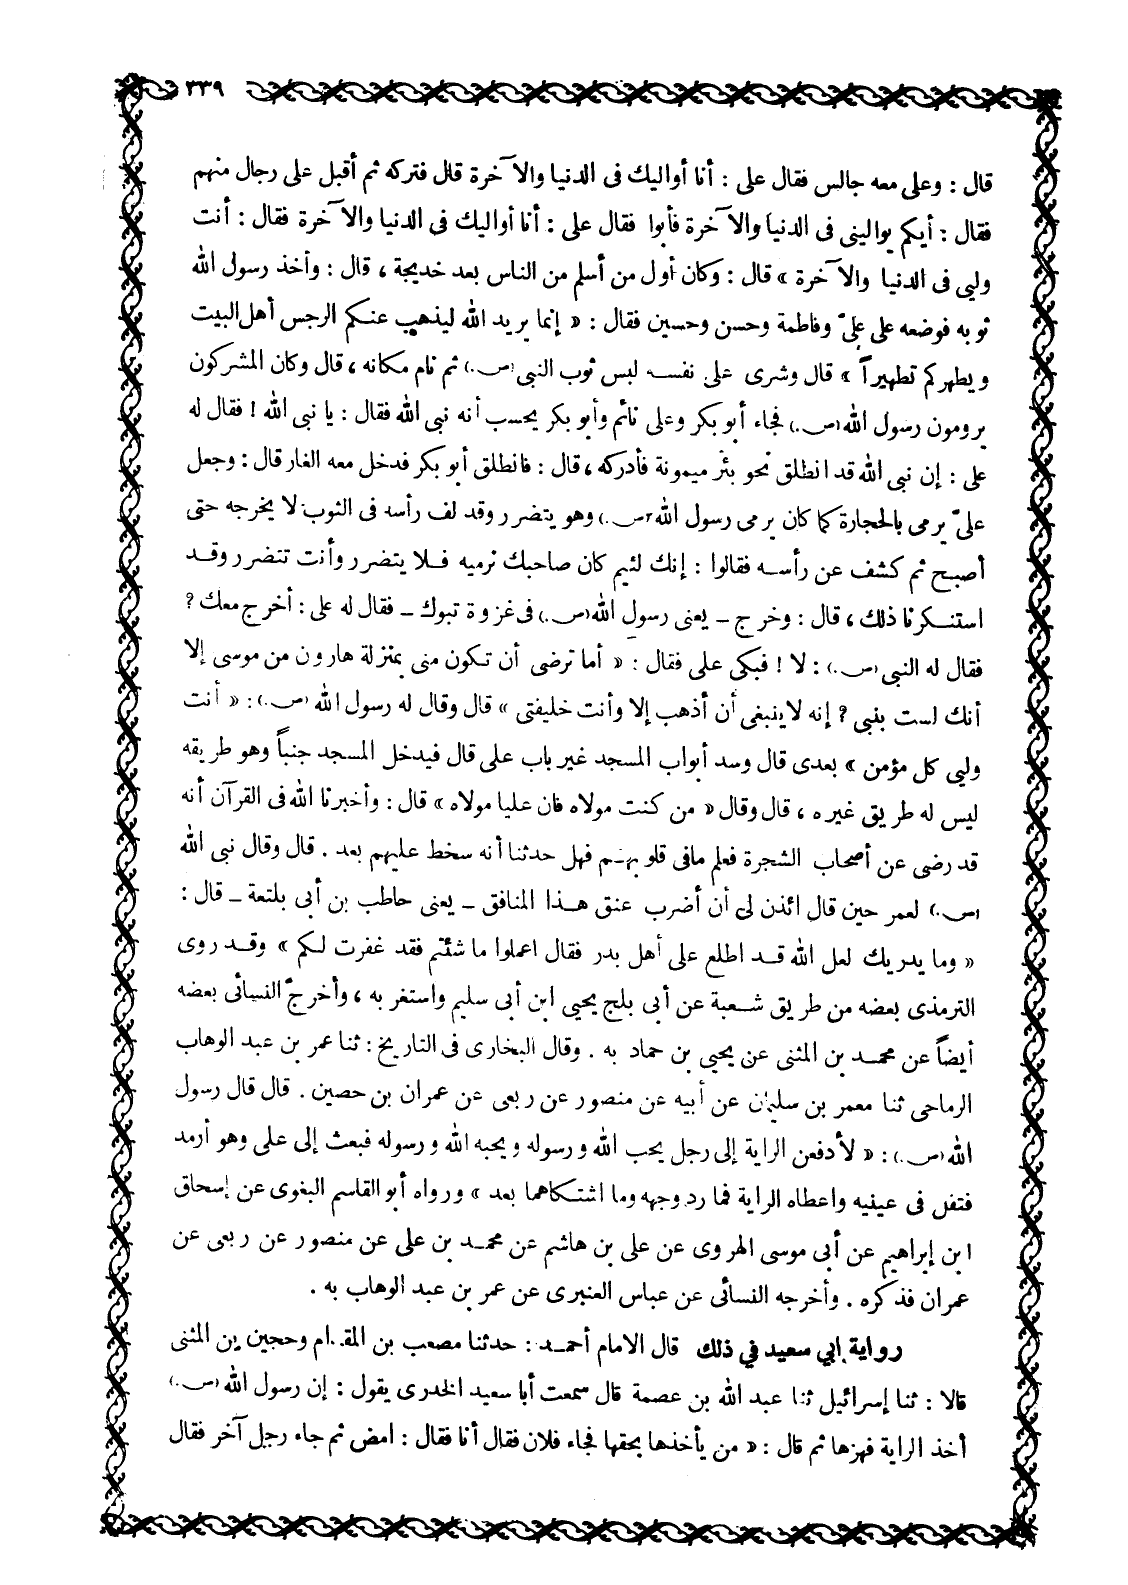 ٣٣٩
قال : وعلى معه جالس فقال على : أنا أواليك فى الدنيا والآخرة قال فتركه ثم أقبل على رجال منهم
فقال : أيكم يوالينى فى الدنيا والآخرة فأبوا فقال على : أنا أواليك فى الدنيا والآخرة فقال : أنت
وليى فى الدنيا والآخرة » قال : وكان أول من أسلم من الناس بعد خديجة ، قال : وأخذ رسول الله
ثوبه فوضعه على علىّ وفاطمة وحسن وحسين فقال : « إنما يريد الله ليذهب عنكم الرجس أهل البيت
ويطهركم تطهيراً » قال وشرى على نفسه لبس ثوب النبى (ص.) ثم نام مكانه ، قال وكان المشركون
يرومون رسول الله (ص.) فجاء أبو بكر وعلى نائم وأبو بكر يحسب أنه نبى الله فقال : يا نبى الله ! فقال له
على : إن نبى الله قد انطلق نحو بئر ميمونة فأدركه ، قال : فانطلق أبو بكر فدخل معه الغار قال : وجعل
علىّ يرمى بالحجارة كما كان يرمى رسول الله (ص.) وهو يتضرر وقد لف رأسه فى الثوب لا يخرجه حتى
أصبح ثم كشف عن رأسه فقالوا : إنك لئيم كان صاحبك نرميه فلا يتضرر وأنت تتضرر وقد
استنكرنا ذلك ، قال : وخرج ــ يعنى رسول الله (ص.) فى غزوة تبوك ــ فقال له على : أخرج معك ؟
فقال له النبى (ص.) : لا ! فبكى على فقال : « أما ترضى أن تكون منى بمنزلة هارون من موسى إلا
أنك لست بنبى ؟ إنه لا ينبغى أن أذهب إلا وأنت خليفتى » قال وقال له رسول الله (ص.) : « أنت
وليى كل مؤمن » بعدى قال وسد أبواب المسجد غير باب على قال فيدخل المسجد جنباً وهو طريقه
ليس له طريق غيره ، قال وقال « من كنت مولاه فان عليا مولاه » قال : وأخبرنا الله فى القرآن أنه
قد رضى عن أصحاب الشجرة فعلم مافى قلوبهم فهل حدثنا أنه سخط عليهم بعد . قال وقال نبى الله
(ص.) لعمر حين قال ائذن لى أن أضرب عنق هذا المنافق ــ يعنى حاطب بن أبى بلتعة ــ قال :
« وما يدريك لعل الله قد اطلع على أهل بدر فقال اعملوا ما شئتم فقد غفرت لكم » وقد روى
الترمذى بعضه من طريق شعبة عن أبى بلج يحيى ابن أبى سليم واستغربه ، وأخرج النسائى بعضه
أيضاً عن محمد بن المثنى عن يحيى بن حماد به . وقال البخارى فى التاريخ : ثنا عمر بن عبد الوهاب
الرماحى ثنا معمر بن سليمان عن أبيه عن منصور عن ربعى عن عمران بن حصين . قال قال رسول
الله (ص.) : « لأدفعن الراية إلى رجل يحب الله ورسوله ويحبه الله ورسوله فبعث إلى على وهو أرمد
فتفل فى عينيه واعطاه الراية فما رد وجهه وما اشتكاهما بعد » ورواه أبو القاسم البغوى عن إسحاق
ابن إبراهيم عن أبى موسى الهروى عن على بن هاشم عن محمد بن على عن منصور عن ربعى عن
عمران فذكره . وأخرجه النسائى عن عباس العنبرى عن عمر بن عبد الوهاب به .
رواية ابي سعيد في ذلك قال الامام أحمد : حدثنا مصعب بن المقدام وحجين بن المثنى
قالا : ثنا إسرائيل ثنا عبد الله بن عصمة قال سمعت أبا سعيد الخدرى يقول : إن رسول الله (ص.)
أخذ الراية فهزها ثم قال : « من يأخذها بحقها فجاء فلان فقال أنا فقال : امض ثم جاء رجل آخر فقال